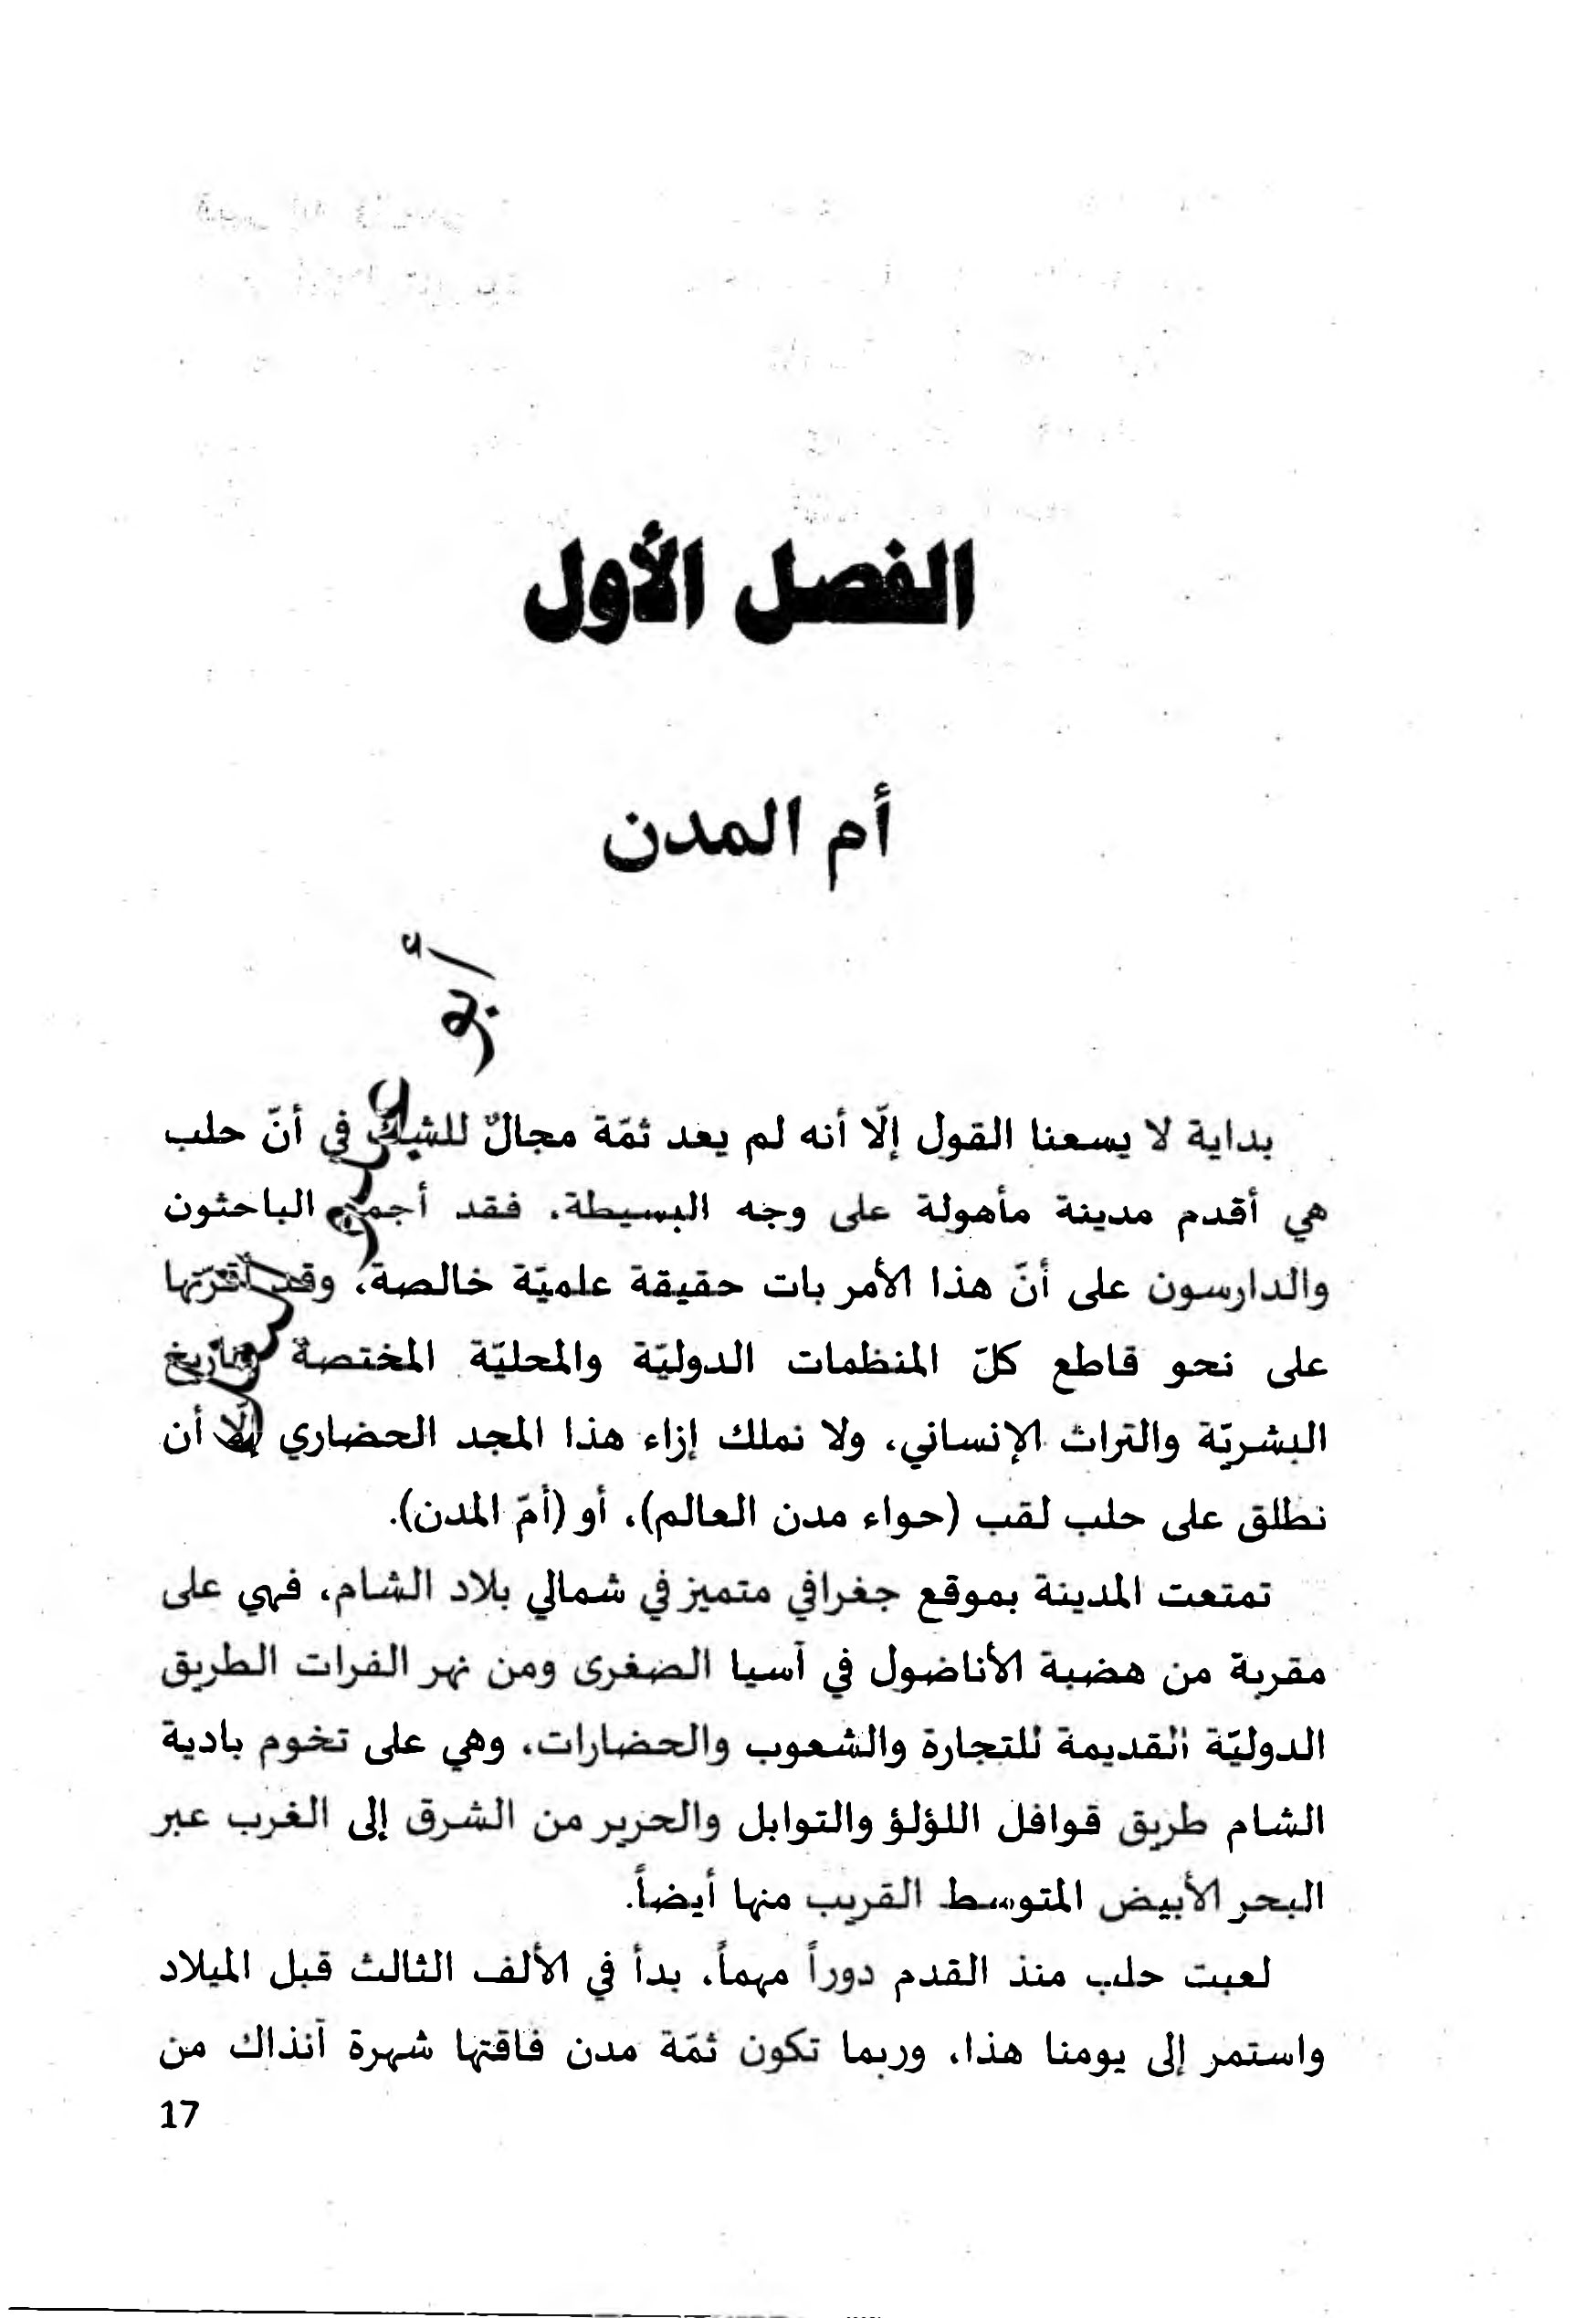 الفصل الأول
أم المدن
بداية لا يسعنا القول إلّا أنه لم يعد ثمّة مجالٌ للشك في أنّ حلب
هي أقدم مدينة مأهولة على وجه البسيطة، فقد أجمع الباحثون
والدارسون على أنّ هذا الأمر بات حقيقة علميّة خالصة، وقد أقرّتها
على نحو قاطع كلّ المنظمات الدوليّة والمحليّة المختصة بتاريخ
البشريّة والتراث الإنساني، ولا نملك إزاء هذا المجد الحضاري إلّا أن
نطلق على حلب لقب (حواء مدن العالم)، أو (أمّ المدن).
تمتعت المدينة بموقع جغرافي متميز في شمالي بلاد الشام، فهي على
مقربة من هضبة الأناضول في آسيا الصغرى ومن نهر الفرات الطريق
الدوليّة القديمة للتجارة والشعوب والحضارات، وهي على تخوم بادية
الشام طريق قوافل اللؤلؤ والتوابل والحرير من الشرق إلى الغرب عبر
البحر الأبيض المتوسط القريب منها أيضاً.
لعبت حلب منذ القدم دوراً مهماً، بدأ في الألف الثالث قبل الميلاد
واستمر إلى يومنا هذا، وربما تكون ثمّة مدن فاقتها شهرة آنذاك من
17